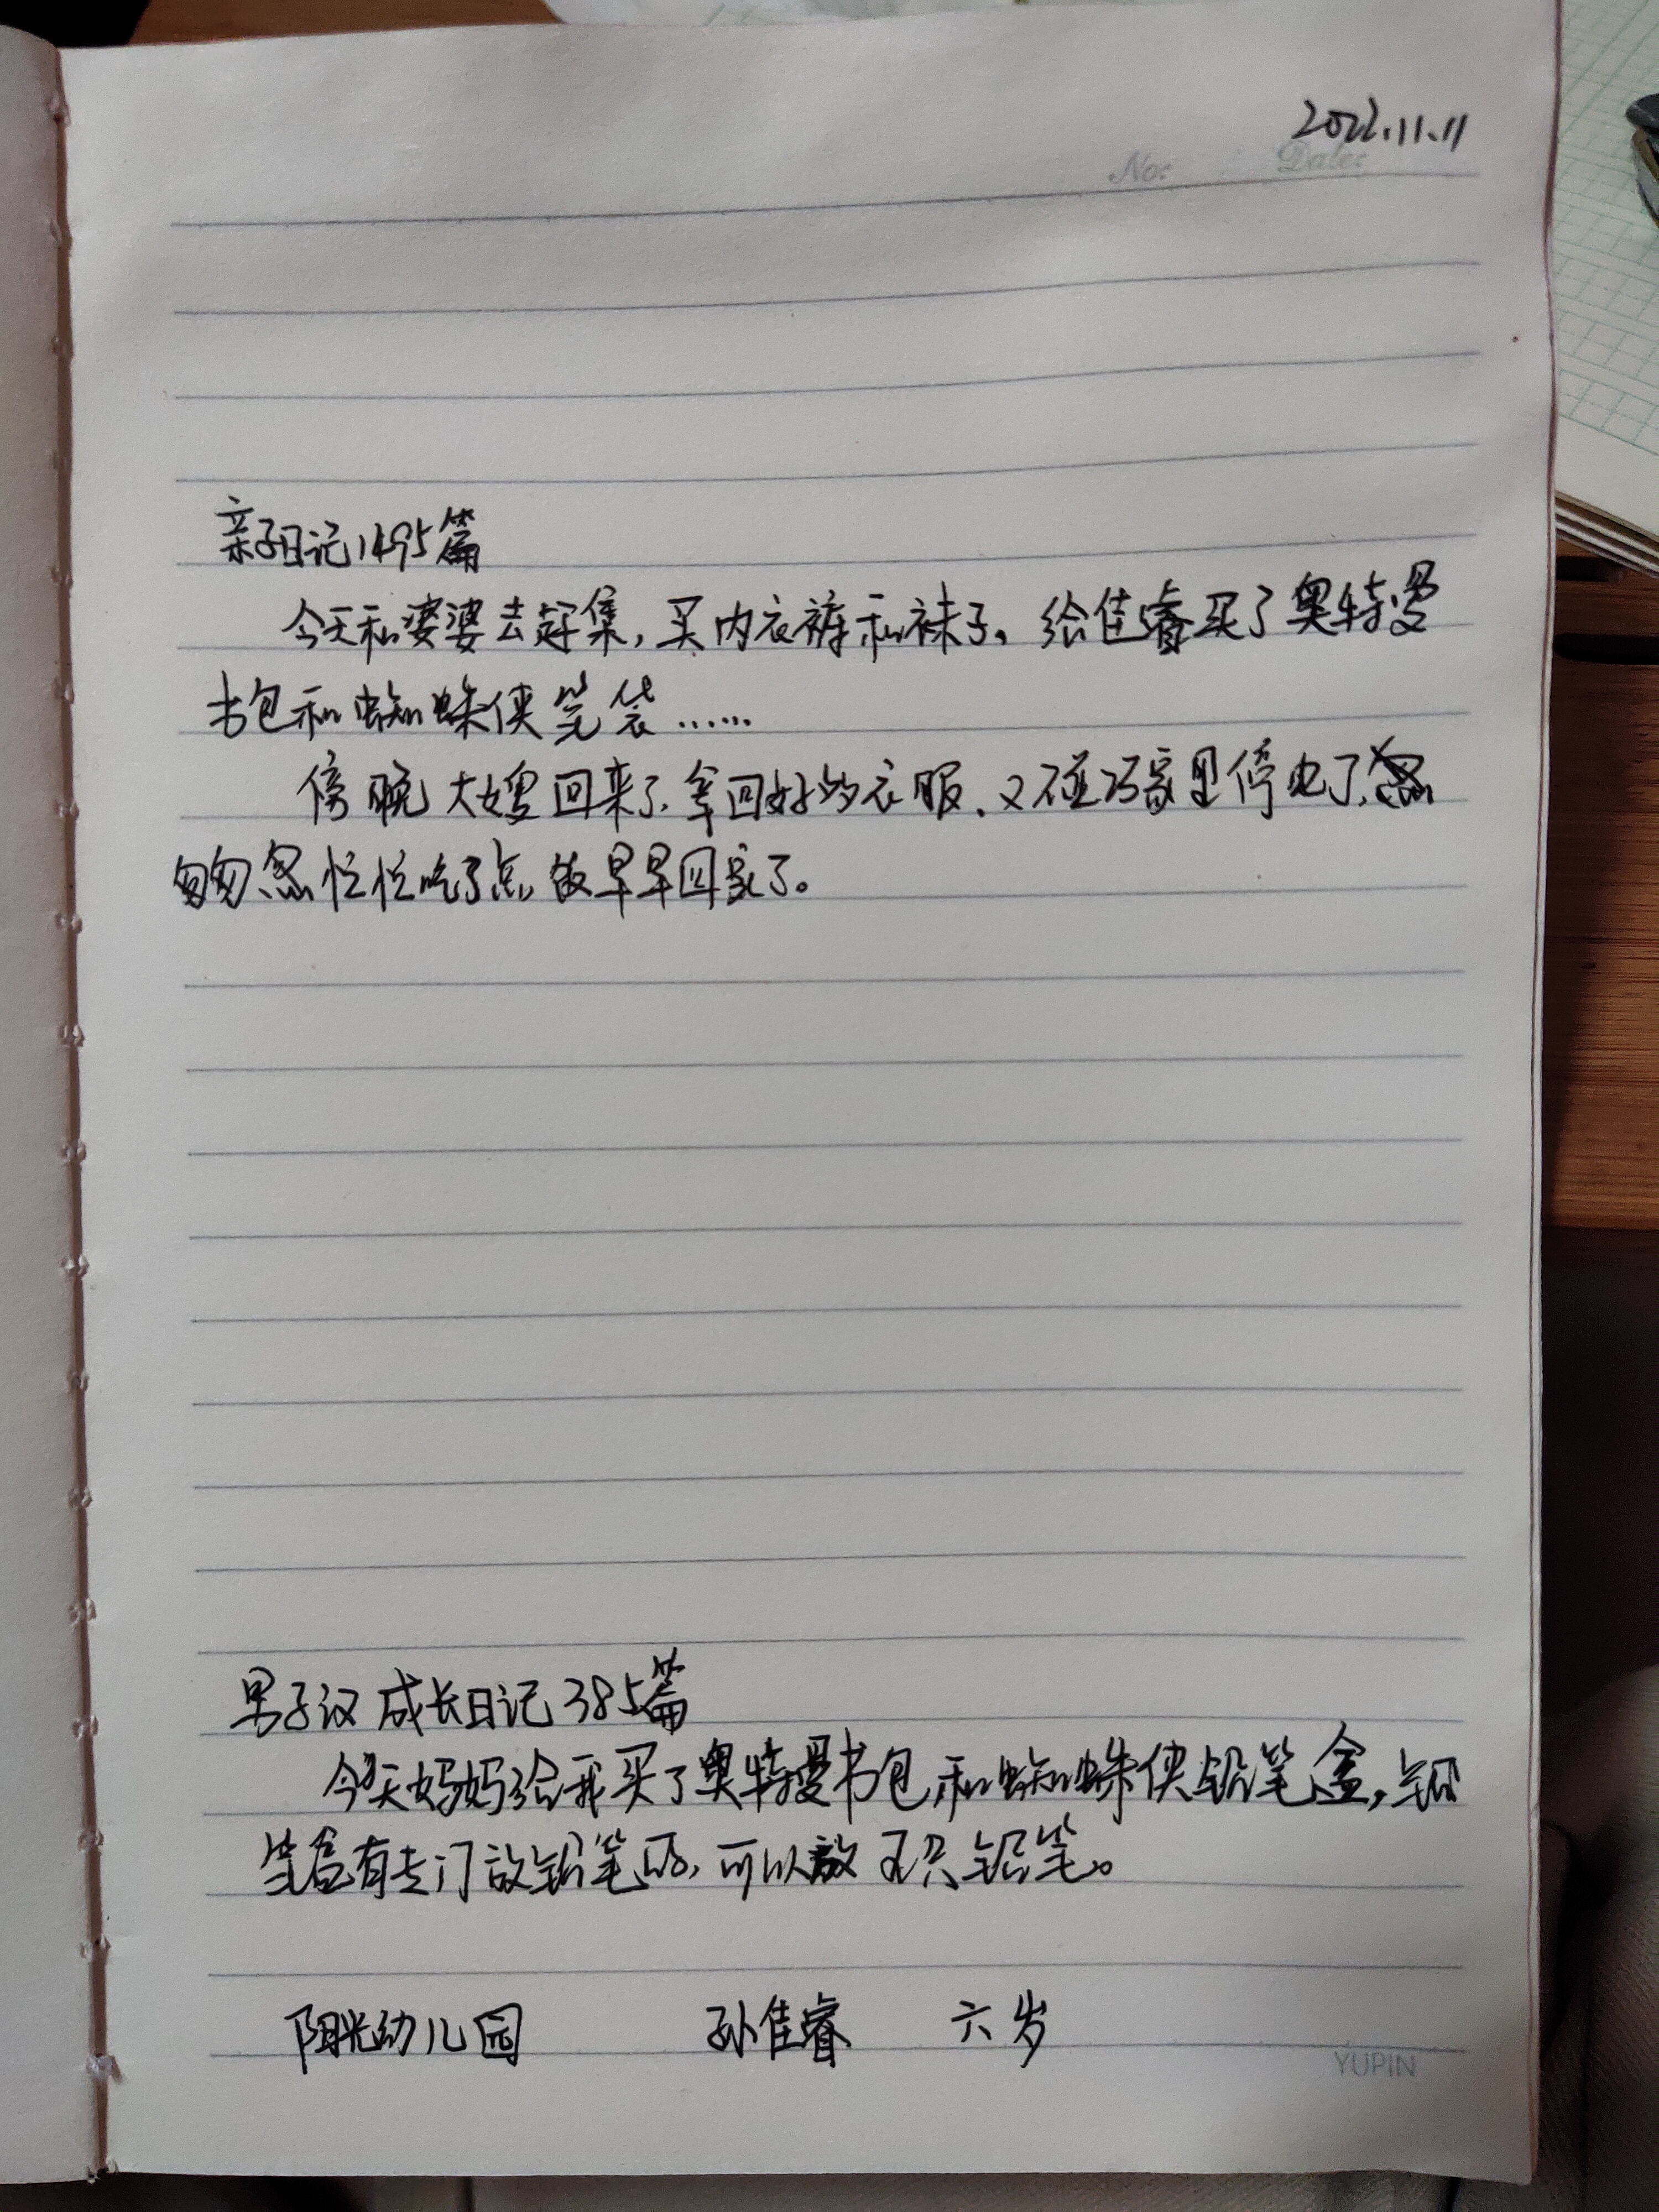 2022.11.11
No: Date:
亲子日记1495篇
今天和婆婆去赶集,买内衣裤和袜子。给佳睿买了奥特曼
书包和蜘蛛侠笔袋……
傍晚大嫂回来了,拿回好的衣服、又碰巧家里停电了,
匆匆忽忙忙吃了点饭早早回家了。
男子汉成长日记385篇
今天妈妈给我买了奥特曼书包和蜘蛛侠铅笔盒,铅
笔盒有专门放铅笔的,可以放 只铅笔。
阳光幼儿园 孙佳睿 六岁
YUPIN